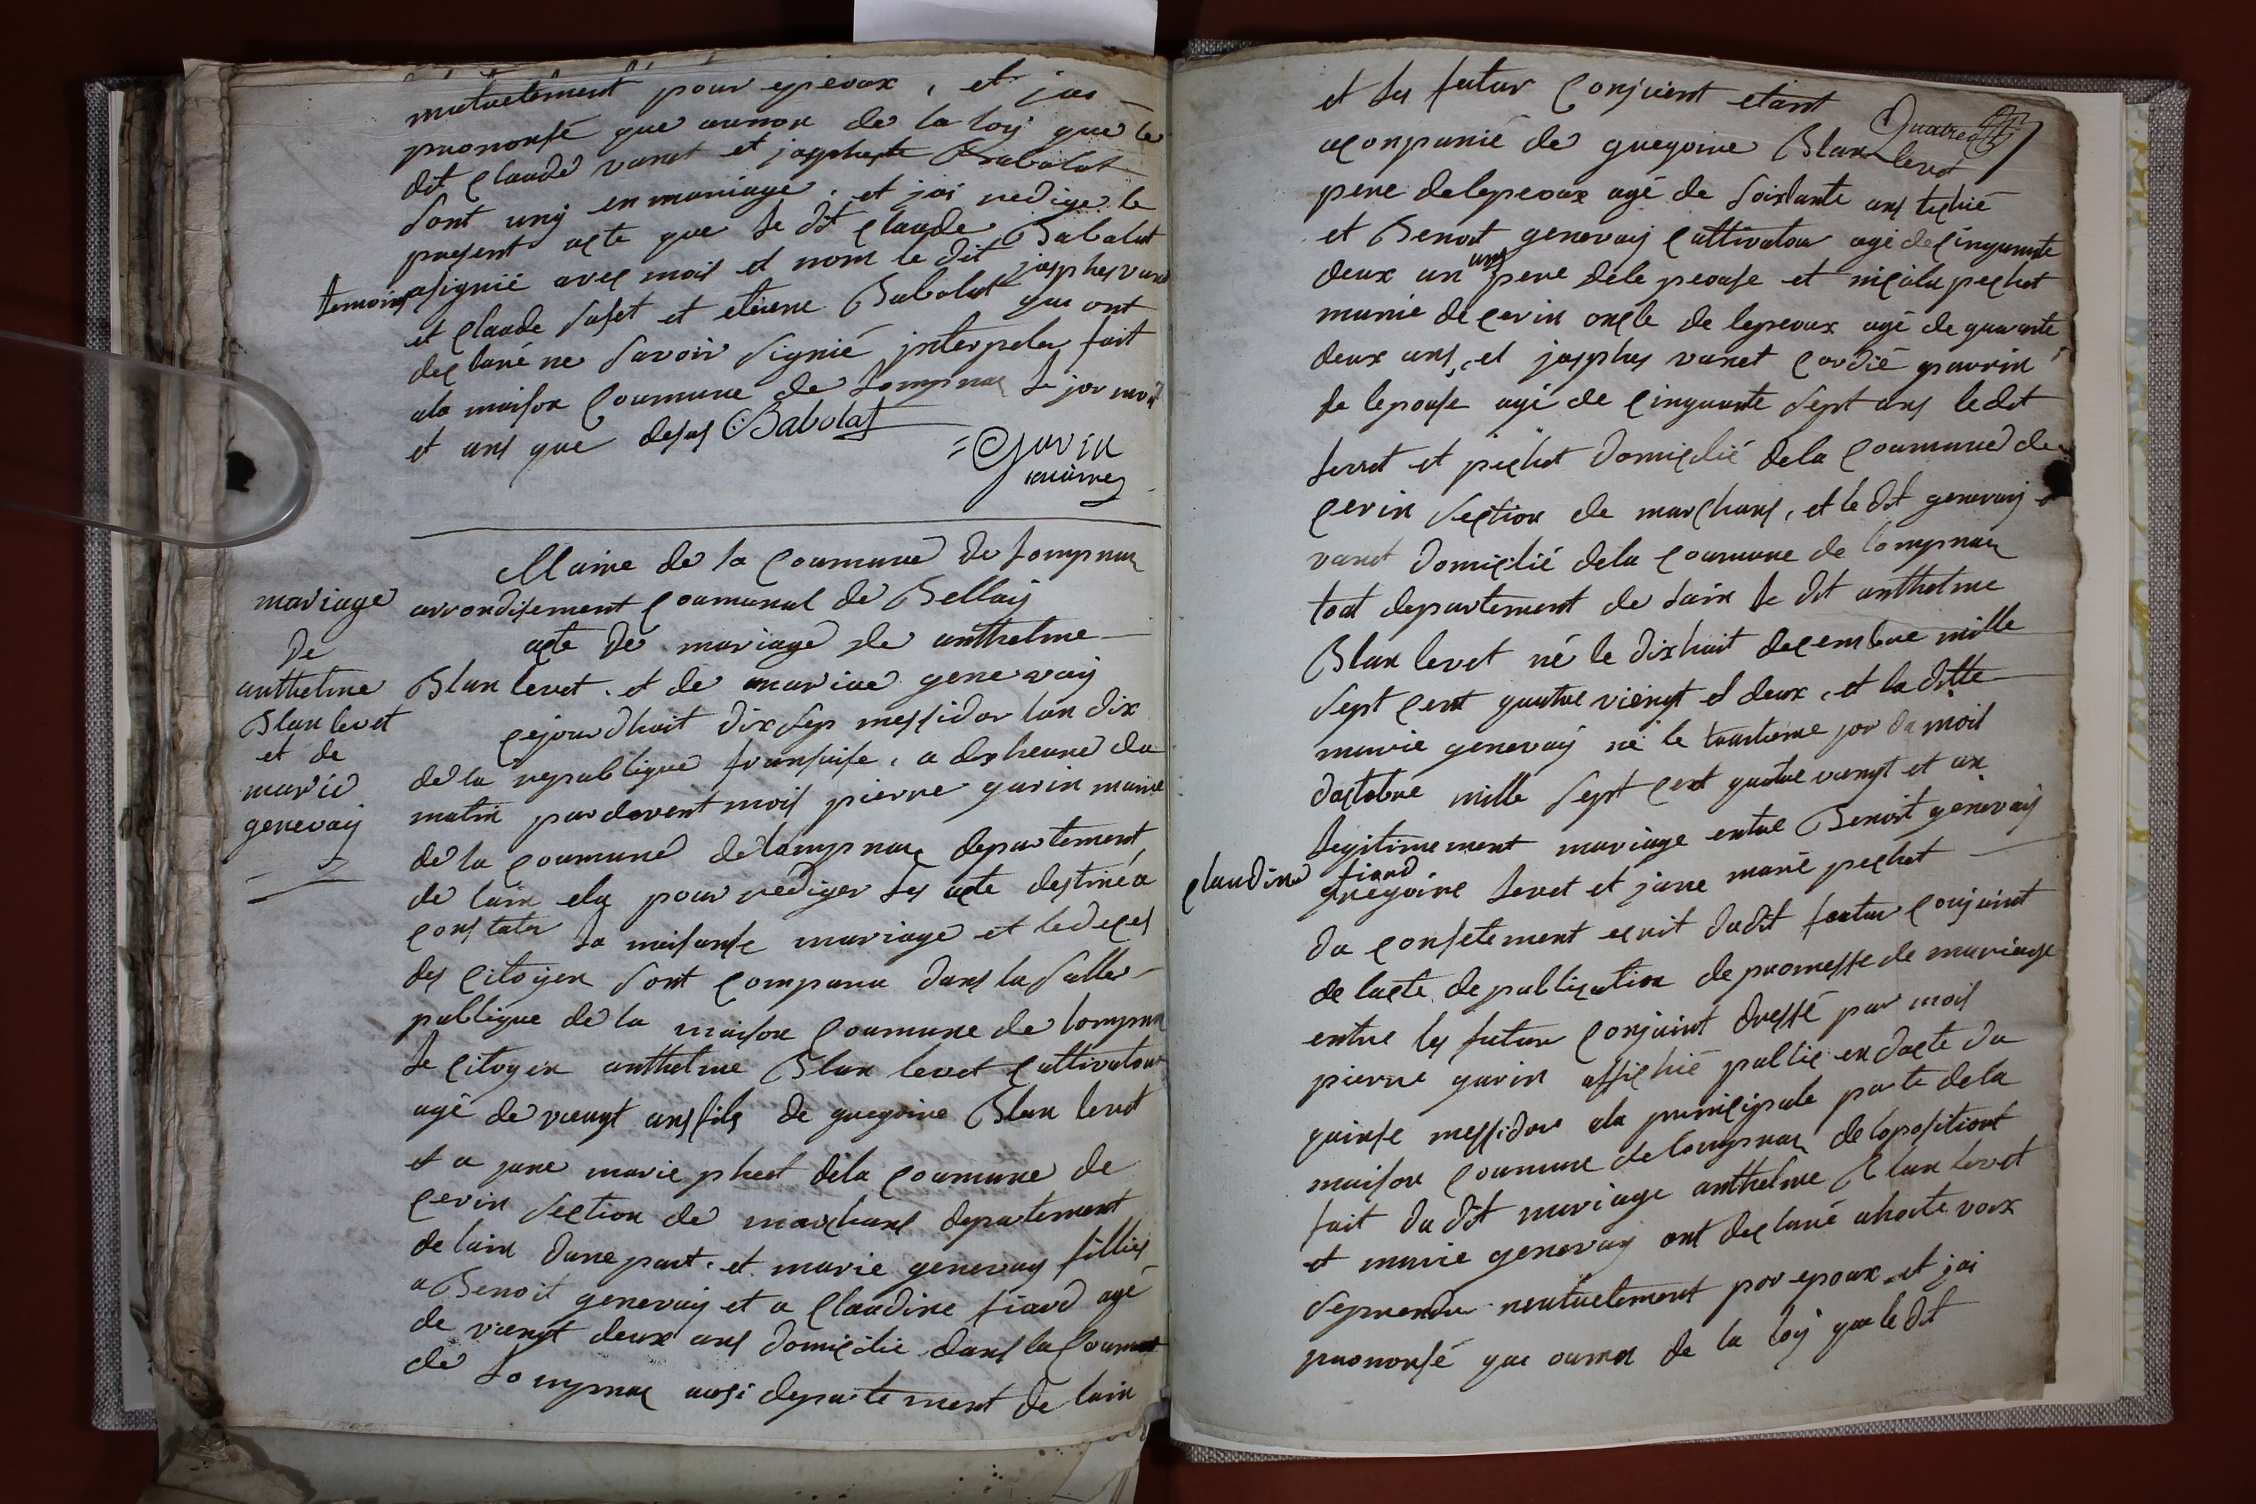 mutuelement pour epeoux, et jai
prononsé que aunon de la loy que le
dit Claude vanet et josphecte Babolat
sont uny en mariage, et jai redige le
present acte que le dit Claude Babolat
temoins asignié avec mois et nom le dit josphes vanet
et Claude sufet et etiene Babolat qui ont
declaré ne savoir signié jnterpeler fait
ala maison Coumune de Lompnas le jor mois
et ans que desus Babolat
= Gurin
maire
Maire de la Coumune de Lompnas
arrondisement Coumunal de Bellay
acte de mariage de anthelme
Blan levet et de mariae genevay
mariage
de
anthelme
Blan levet
et de
marie
genevay
cejourdhuit dix sep messidor lan dix
de la republique fransaise, a dix heure du
matin pardevent mois pierre gurin maire
de la Coumune de Lompnas departement
de lain elu pour rediger les acte destiné a
constater la naisanse mariage et le deces
des Citoyen sont Comparu dans la salle
publique de la maison Coumune de Lompnas
le Citoyen anthelme Blan levet Cultivateur
agé de viengt ans fils de gregoire Blan levet
et a jane marie phect dela Coumune de
Cerin section de marchans departement
de lain dune part et marie genevay fillies
a Benoit genevay et a Claudine fiard agé
de viengt deux ans domicilié dans la Coumune
de Lompnas ausi departement de lain
Quatre
et les futur Conjoient etant
aconpanié de gregoire Blan levet
pere delepeoux agé de soixante ans teshié
et Benoit genevay Cultivateur agé de Cinquante
deux an ans pere dele peouse et niColas pechet
marie de Cerin oncle de lepeoux agé de quarante
deux ans, et josphes vanet Cordié parrin
de lepouse agé de Cinquante sept ans ledit
levet et pechet domicilié dela Coumune de
Cerin section de marchans, et le dit genevay et
vanet domicilié dela Coumune de Lompnas
tout departement de Lain le dit anthelme
Blan levet né le dix huit decembre mille
sept Cent quatre viengt et deux, et la ditte
marie genevay né le trantieme jor du mois
doctobre mille sept Cent quatre viengt et un
legitimement mariage entre Benoit genevay
Claudine fiard
gregoire levet et jane marie pechet
du Consetement ecrit dudit foutur Conjoint
de lacte de publication de promesse de mariage
entre les futur Conjoint dressé par mois
pierre gurin affichié public en dacte du
quinse messidor ala principale porte dela
maison Coumune de Lompnas de loposition
fait du dit mariage anthelme Blan levet
et marie genevay ont declaré ahoute voix
seprendre mutuelement por epoux et jai
prononsé que ounon de la loy que le dit